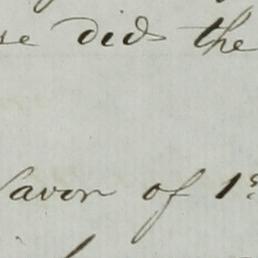 se did the
favor of 1s